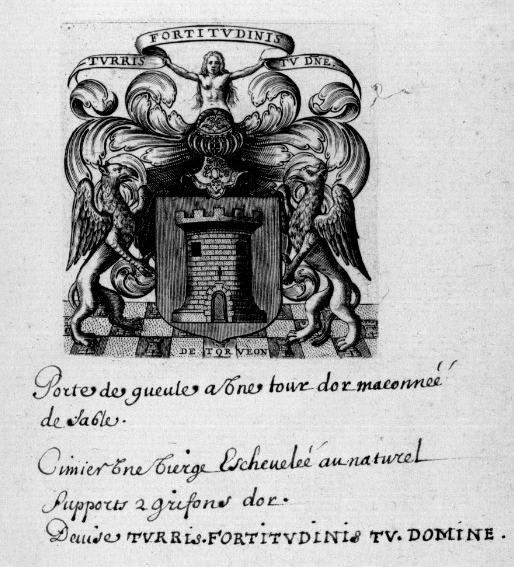 FORTITVDINIS
TVRRIS TV DNE.
DE TORVEON
Porte de gueule a vne tour dor maconneé
de sable.
Cimier vne vierge Escheueleé au naturel
supports 2 grifons dor.
Deuise TVRRIS. FORTITVDINIS TV. DOMINE.